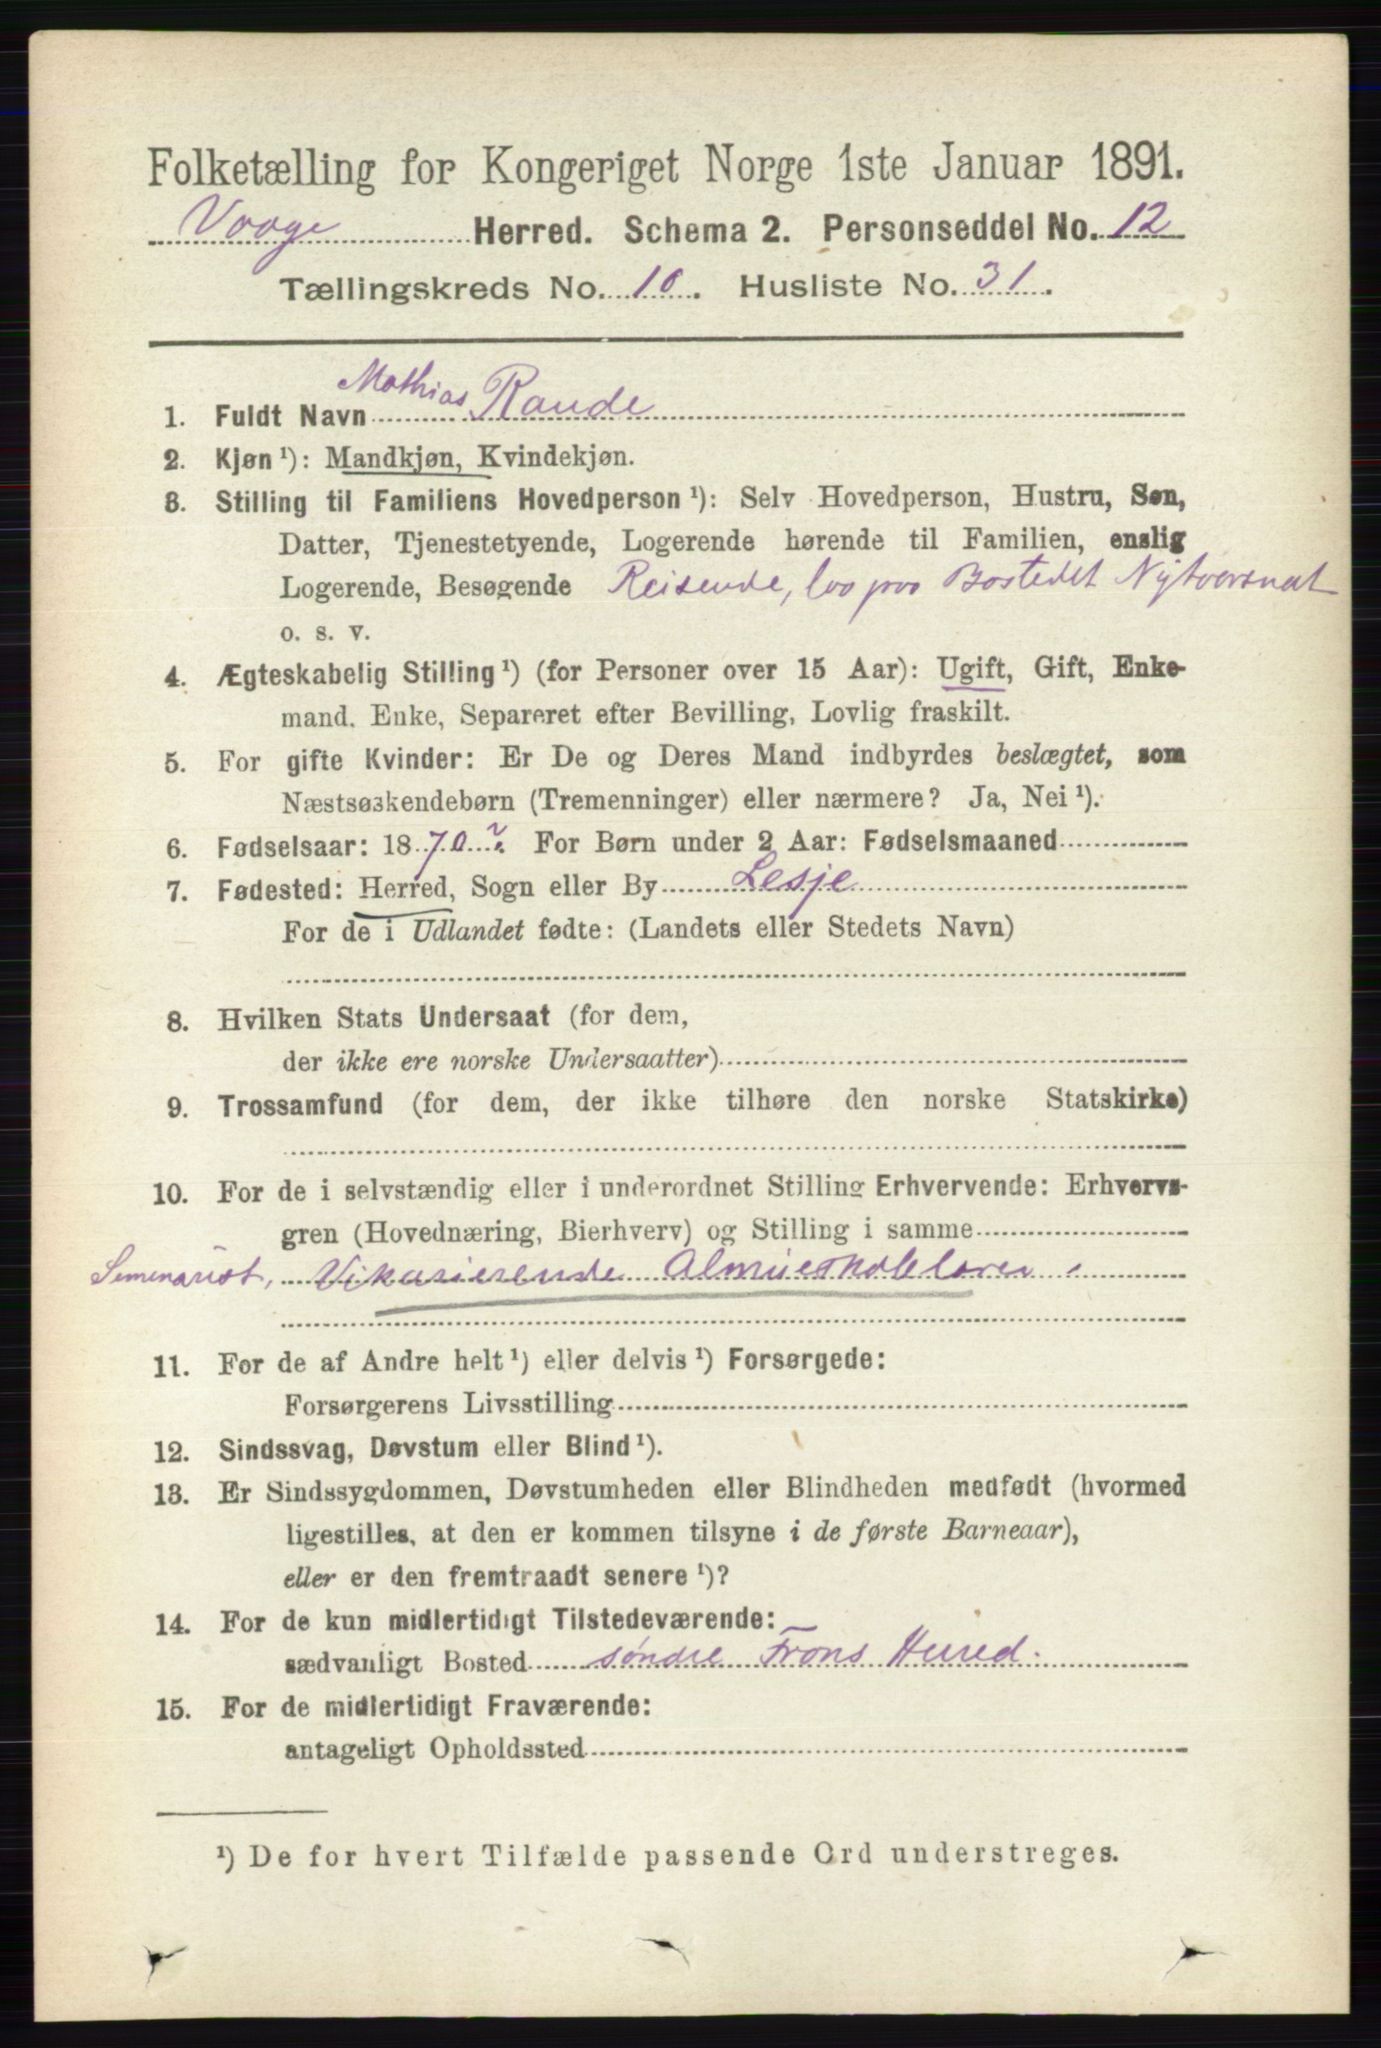 Folketælling for Kongeriget Norge 1ste Januar 1891.
Vaage Herred. Schema 2. Personseddel No. 12
Tællingskreds No. 10. Husliste No. 31.
1. Fuldt Navn Mathias Raude
2. Kjøn ¹): Mandkjøn, Kvindekjøn.
3. Stilling til Familiens Hovedperson ¹): Selv Hovedperson, Hustru, Søn,
Datter, Tjenestetyende, Logerende hørende til Familien, enslig
Logerende, Besøgende Reisende, laa paa Bostedet Nytaarsnat
o. s. v.
4. Ægteskabelig Stilling ¹) (for Personer over 15 Aar): Ugift, Gift, Enke-
mand, Enke, Separeret efter Bevilling, Lovlig fraskilt.
5. For gifte Kvinder: Er De og Deres Mand indbyrdes beslægtet, som
Næstsøskendebørn (Tremenninger) eller nærmere? Ja, Nei ¹).
6. Fødselsaar: 1870? For Børn under 2 Aar: Fødselsmaaned
7. Fødested: Herred, Sogn eller By Lesje
For de i Udlandet fødte: (Landets eller Stedets Navn)
8. Hvilken Stats Undersaat (for dem,
der ikke ere norske Undersaatter)
9. Trossamfund (for dem, der ikke tilhøre den norske Statskirke)
10. For de i selvstændig eller i underordnet Stilling Erhvervende: Erhvervs-
gren (Hovednæring, Bierhverv) og Stilling i samme
Seminarist, Vikarierende Almueskolelærer.
11. For de af Andre helt ¹) eller delvis ¹) Forsørgede:
Forsørgerens Livsstilling
12. Sindssvag, Døvstum eller Blind ¹).
13. Er Sindssygdommen, Døvstumheden eller Blindheden medfødt (hvormed
ligestilles, at den er kommen tilsyne i de første Barneaar),
eller er den fremtraadt senere ¹)?
14. For de kun midlertidigt Tilstedeværende:
sædvanligt Bosted søndre Frons Herred.
15. For de midlertidigt Fraværende:
antageligt Opholdssted
¹) De for hvert Tilfælde passende Ord understreges.